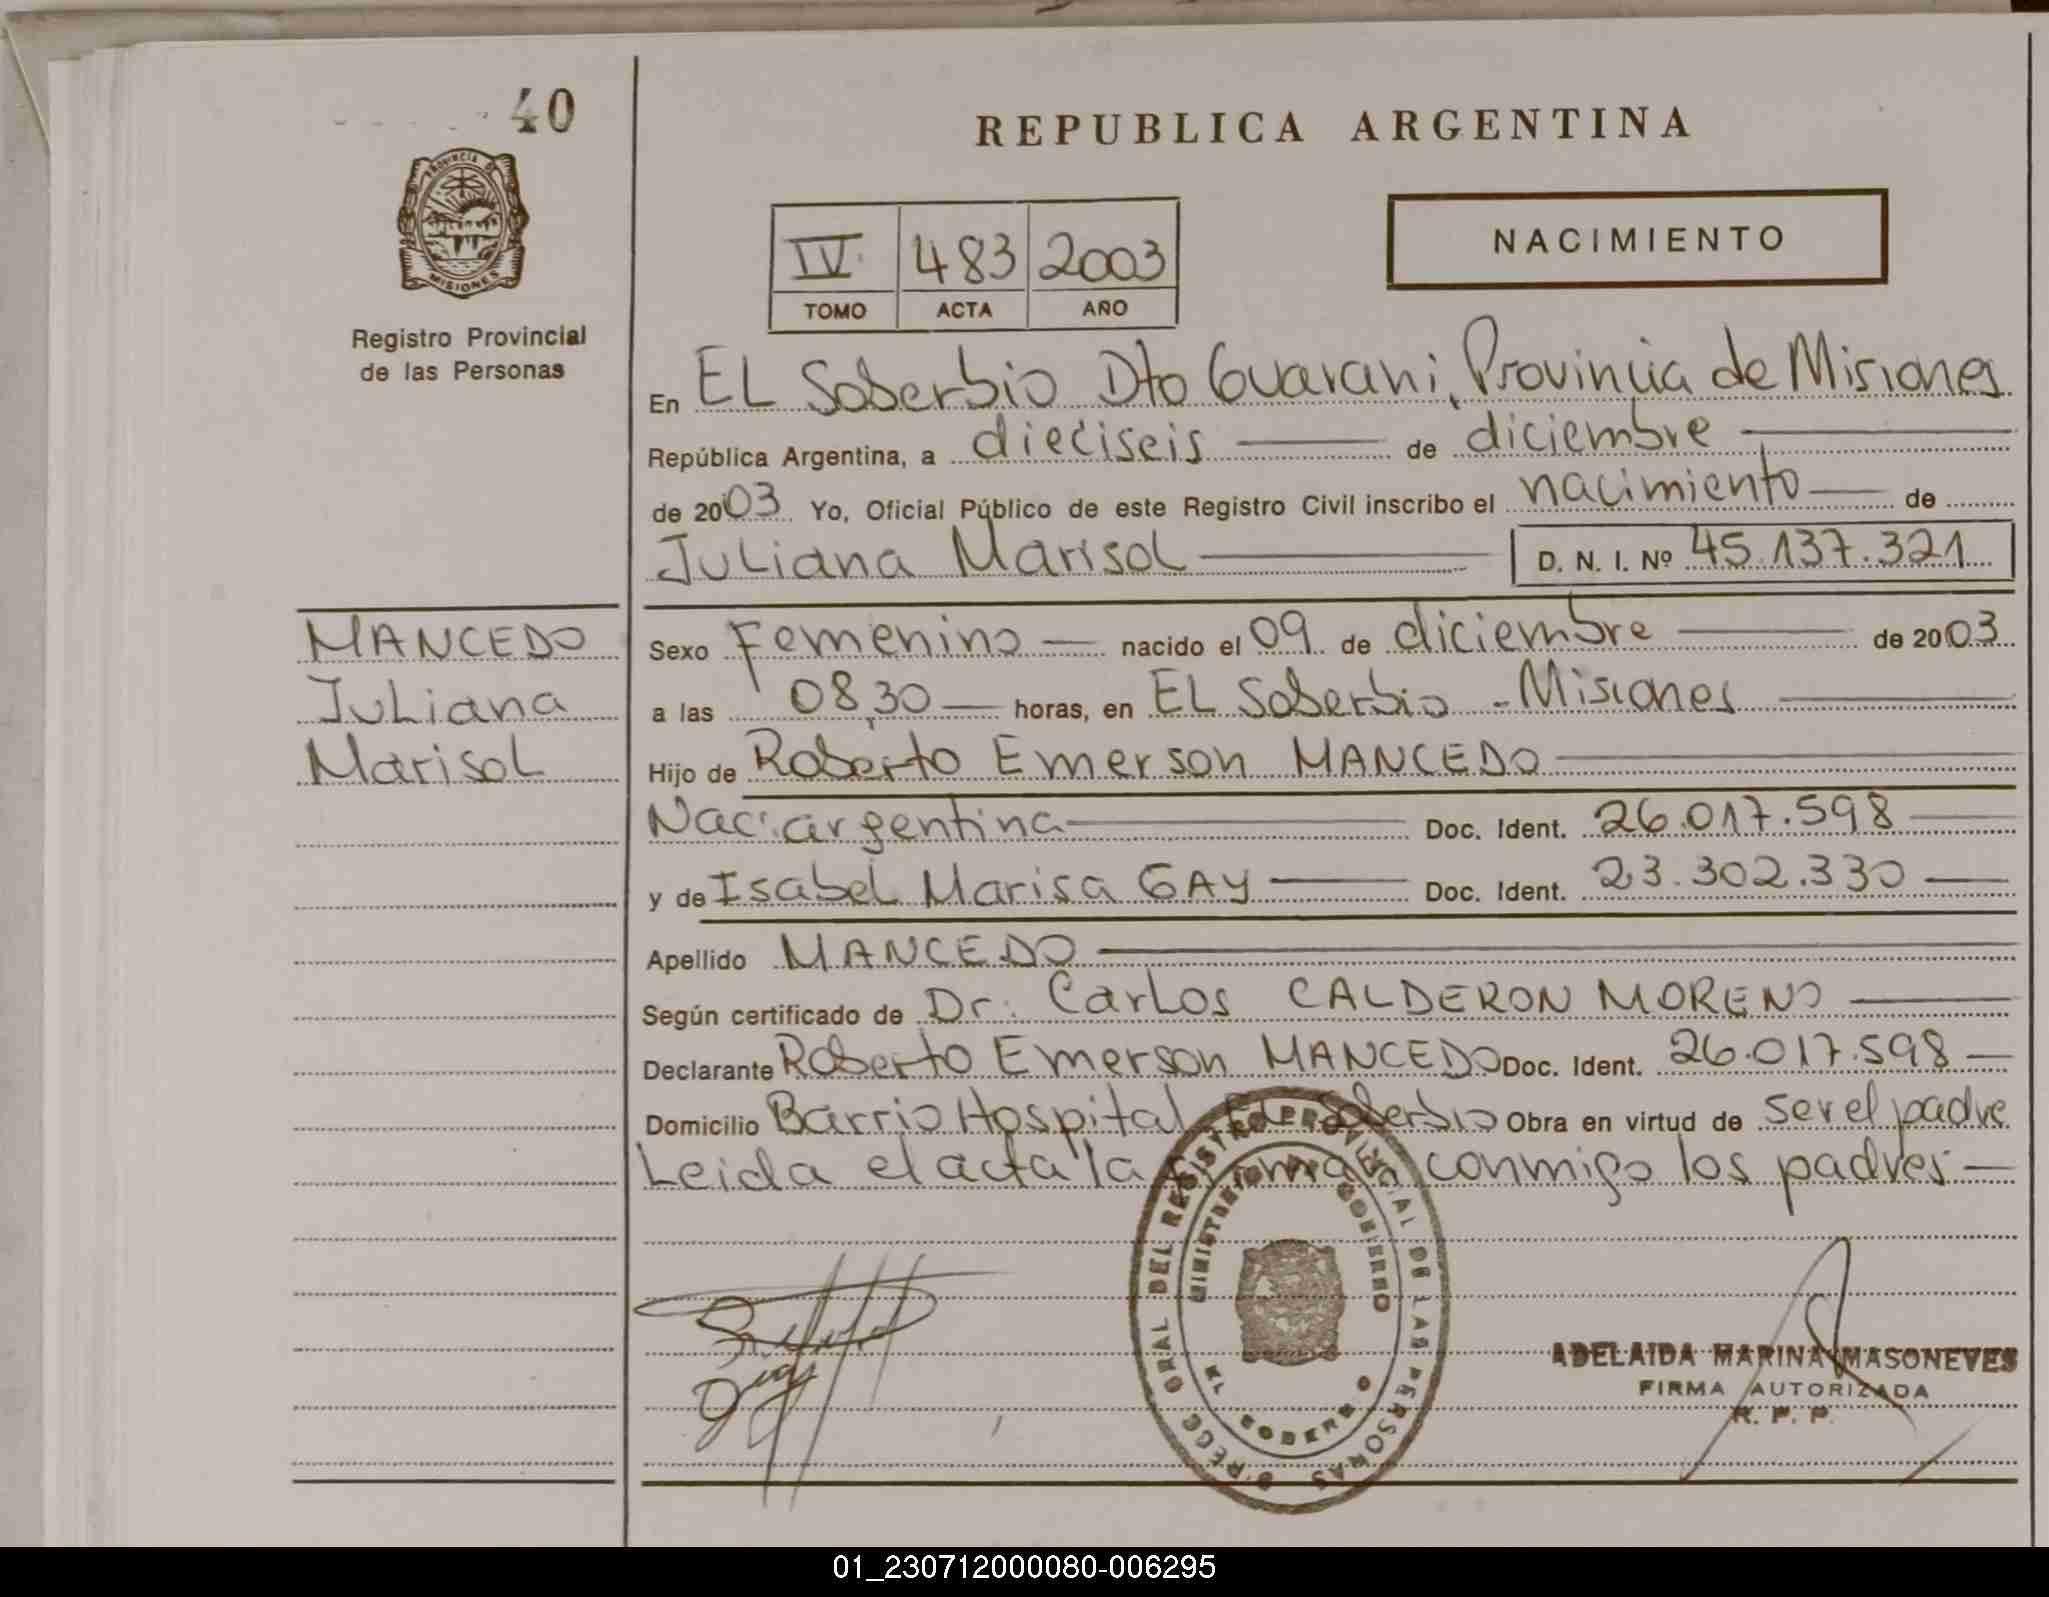 40
PROVINCIA DE
MISIONES
Registro Provincial
de las Personas
REPUBLICA ARGENTINA
IV 483 2003
TOMO ACTA AÑO
NACIMIENTO
En EL Soberbio Dto Guarani, Provincia de Misiones
República Argentina, a dieciseis de diciembre
de 2003 Yo, Oficial Público de este Registro Civil inscribo el nacimiento de
Juliana Marisol D. N. I. Nº 45.137.321
MANCEDO
Juliana
Marisol
Sexo Femenino nacido el 09 de diciembre de 2003
a las 08,30 horas, en EL Soberbio - Misiones
Hijo de Roberto Emerson MANCEDO
Nac: argentina Doc. Ident. 26.017.598
y de Isabel Marisa GAY Doc. Ident. 23.302.330
Apellido MANCEDO
Según certificado de Dr: Carlos CALDERON MORENO
Declarante Roberto Emerson MANCEDO Doc. Ident. 26.017.598
Domicilio Barrio Hospital EL Soberbio Obra en virtud de ser el padre
Leida el acta la firman conmigo los padres
GRAL DEL REGISTRO PROVINCIAL DE LAS PERSONAS
MINISTERIO DE GOBIERNO
EL SOBERBIO
ADELAIDA MARINA MASONEVES
FIRMA AUTORIZADA
R. P. P.
01_230712000080-006295